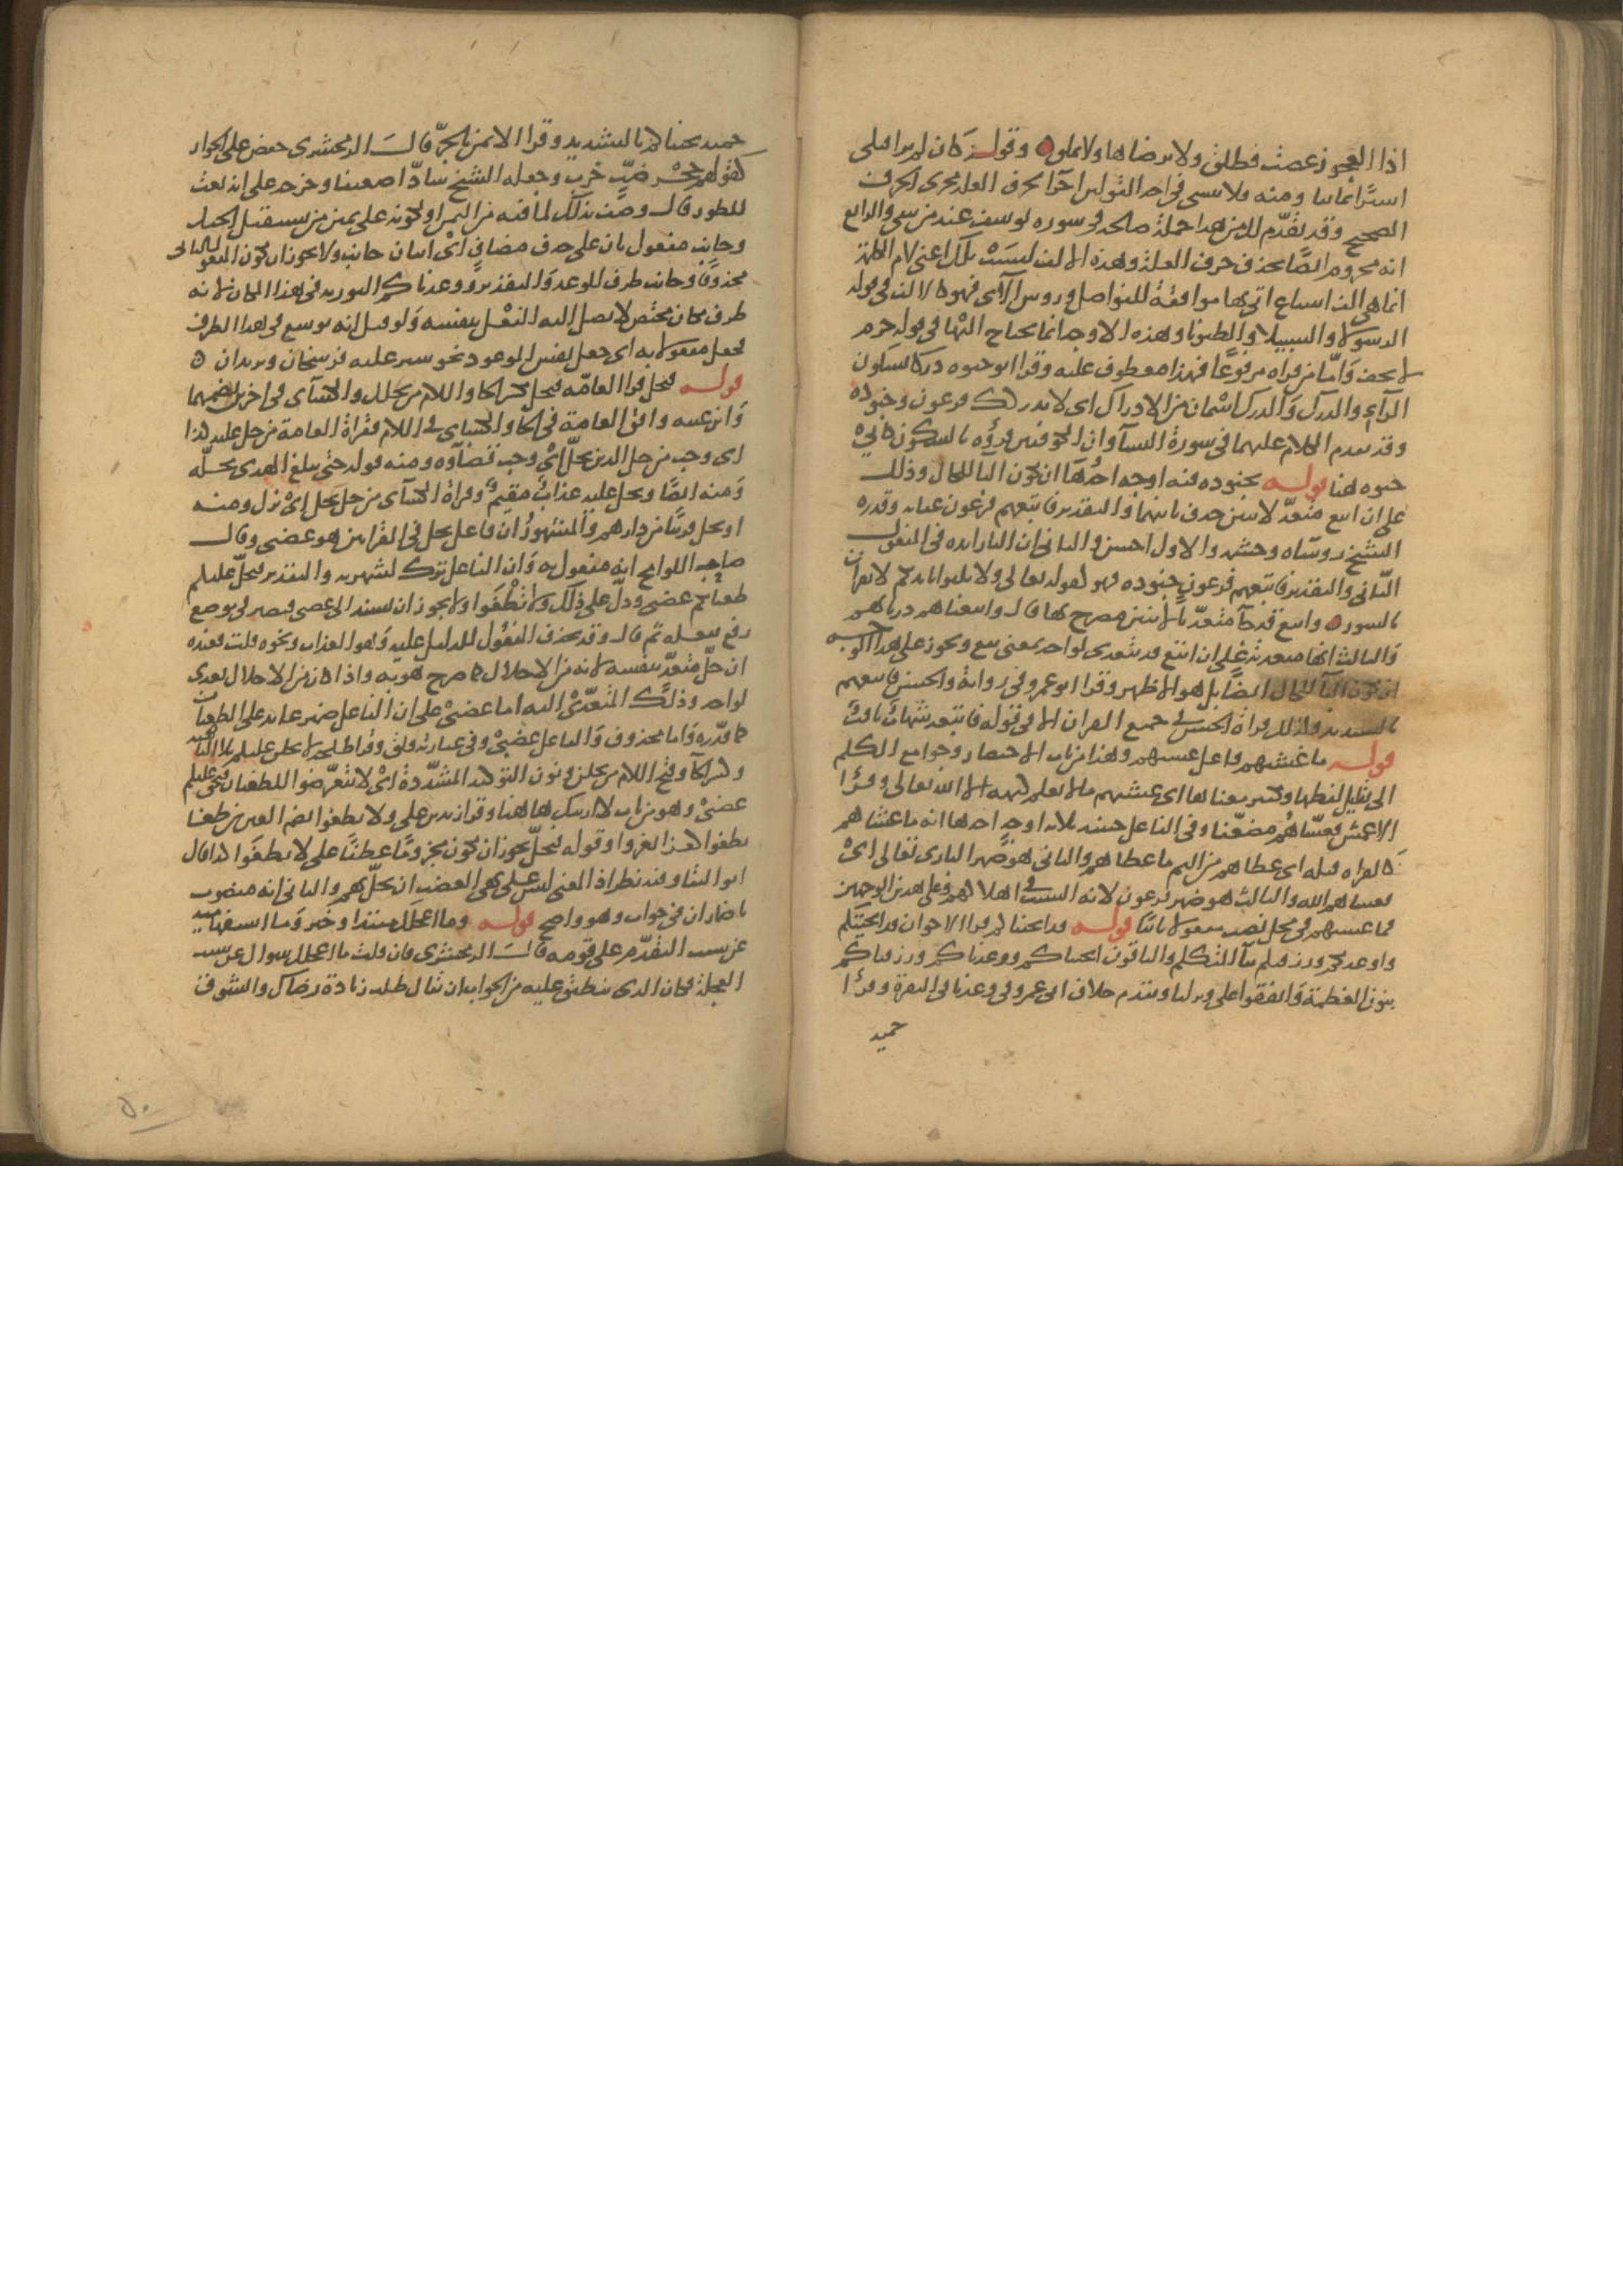 اذا العجوز غضبت فطلق ولا ترضاها ولا تملق وقوله كان لم ترا قبلي
اسيرا يمانيا ومنه فلا تنسى في احد القولين اجرا لحرف العله مجرى الحرف
الصحيح وقد تقدم لك من هذا جملة صالحه في سورة يوسف عند من يتقي والرابع
انه مجزوم ايضا بحذف حرف العلة وهذه الالف ليست تلك اعني لام الكلمة
انما هي الف اشباع اتي بها موافقة للفواصل وروس الآي فهي كالالف في قوله
الرسولا والسبيلا والظنونا وهذه الاوجه انما يحتاج اليها في قراه جزم
لا تخف واما من قراه مرفوعا فهذا معطوف عليه وقرا ابو حيوه دركا بسكون
الراء والدرك والدرك اسمان من الادراك اي لا يدركك فرعون وجنوده
وقد تقدم الكلام عليهما في سورة النسا وان الكوفيين قرؤه بالسكون كابي
حيوه هنا قوله بجنوده فيه اوجه احدها ان تكون البا للحال وذلك
على ان اتبع متعد لاثنين حذف ثانيهما والتقدير فاتبعهم فرعون عقابه وقدره
الشيخ روساه وحشمه والاول احسن والثاني ان البا زايده في المفعول
الثاني والتقدير فاتبعهم فرعون جنوده فهو كقوله تعالى ولا تلقوا بايديكم لا يقران
بالسور واتبع قد جا متعديا لاثنين مصرح بهما قال واتبعناهم ذرياتهم
والثالث انها معدية على ان اتبع قد يتعدى لواحد بمعنى تبع ويجوز على هذا الوجه
ان تكون البا للحال ايضا بل هو الاظهر وقرا ابو عمرو في رواية والحسن فاتبعهم
بالتشديد وكذلك قراة الحسن في جميع القران الا في قوله فاتبعه شهاب ثاقب
قوله ما غشيهم فاعل غشيهم وهذا من باب الاختصار وجوامع الكلم
التي يقل لفظها ويكثر معناها اي غشيهم ما لا يعلم كنهه الا الله تعالى وقرا
الاعمش فغشاهم مضعفا وفي الفاعل حينيذ ثلاثة اوجه احدها انه ما غشاهم
كالقراه قبله اي غطاهم من اليم ما غطاهم والثاني هو ضمير الباري تعالى اي
فغشاهم الله والثالث هو ضمير فرعون لانه السبب في اهلاكهم وعلى هذين الوجهين
فما غشيهم في محل نصب مفعولا ثانيا قوله قد انجيناكم قرا الاخوان قد انجيتكم
وواعدتكم ورزقتكم بتا المتكلم والباقون انجيناكم ووعدناكم ورزقناكم
بنون العظمة واتفقوا على ونزلنا وتقدم خلاف ابي عمرو في وعدنا في البقرة وقرا
حميد
حميد نجيناكم بالتشديد وقرا الايمن بالجر قال الزمخشري خفض على الجوار
كقولهم جحر ضب خرب وجعله الشيخ شاذا ضعيفا وخرجه على انه نعت
للطور قال وصف بذلك لما فيه من اليمن او لكونه على يمين من يستقبل الجبل
وجانب مفعول ثان على حذف مضاف اي اتيان جانب ولا يجوز ان يكون المفعول الثاني
محذوفا وجانب ظرف للوعد والتقدير ووعدناكم التوريه في هذا المكان لانه
ظرف مكان مختص لا يصل اليه الفعل بنفسه ولو قيل انه توسع في هذا الظرف
فجعل مفعولا به اي جعل نفس الموعود نحو سير عليه فرسخان وبريدان
قوله فيحل قرا العامه فيحل بكسر الحا واللام من يحلل والكسآي في اخرين بضمهما
وابن عتيبه وافق العامة في الحا والكساي في اللام فقراة العامة من حل عليه كذا
اي وجب من حل الدين يحل اي وجب قضآوه ومنه قوله حتى يبلغ الهدى محله
ومنه ايضا ويحل عليه عذاب مقيم وقراة الكسآي من حل يحل اي نزل ومنه
او تحل قريبا من دارهم والمشهور ان فاعل يحل في القراتين هو غضبي وقال
صاحب اللوامح انه مفعول به وان الفاعل ترك لشهرته والتقدير فيحل عليكم
طغيانكم غضبي ودل على ذلك ولا تطغوا ولا يجوز ان يسند الى غضبي فيصير في موضع
رفع بفعله ثم قال وقد يحذف المفعول للدليل عليه وهو العذاب ونحوه قلت فعنده
ان حل متعد بنفسه لانه من الاحلال كما صرح هو به واذا كان من الاحلال تعدى
لواحد وذلك المتعدي اليه اما غضبي على ان الفاعل ضمير عايد على الطغيان
كما قدره واما محذوف والفاعل غضبي وفي عبارته قلق وقرا طلحه لا يحلن عليكم بلا الناهيه
وكسر الحآ وفتح اللام من يحلن ونون التوكيد المشددة اي لا تتعرضوا للطغيان فيحق عليكم
غضبي وهو من باب لا ارينك هاهنا وقرا زيد بن علي ولا تطغوا بضم الغين من طغا
يطغوا كغزا يغزوا وقوله فيحل يجوز ان يكون مجزوما عطفا على لا تطغوا كذا قال
ابو البقا وفيه نظر اذ المعنى ليس على نهي الغضب ان يحل بهم والثاني انه منصوب
باضمار ان في جواب وهو واضح قوله وما اعجلك مبتدا وخبر وما استفهاميه
عن سبب التقدم على قومه قال الزمخشري فان قلت ما اعجلك سوال عن سبب
العجلة فكان الذي ينطبق عليه من الجواب ان يقال طلب زيادة رضاك والشوق
٥٠